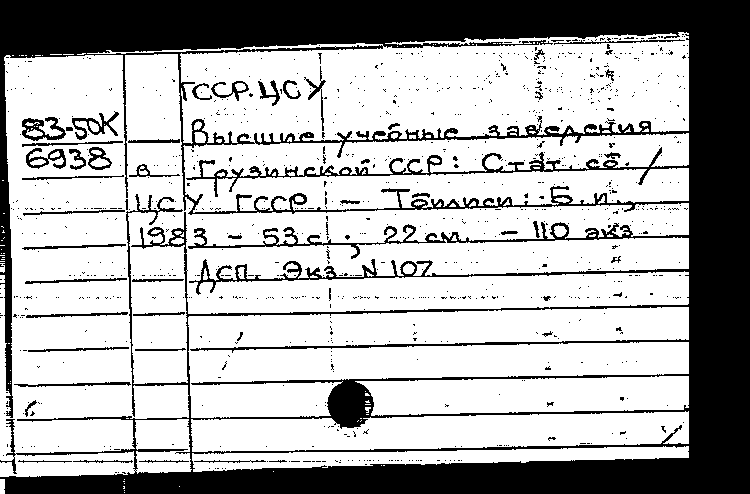 ГССР. ЦСУ
83-50К
6938
Высшие учебные заведения
в Грузинской ССР: Стат. сб. /
ЦСУ ГССР. – Тбилиси: Б. и.,
1983. – 53 с.; 22 см. – 110 экз.
Дсп. Экз. N 107.